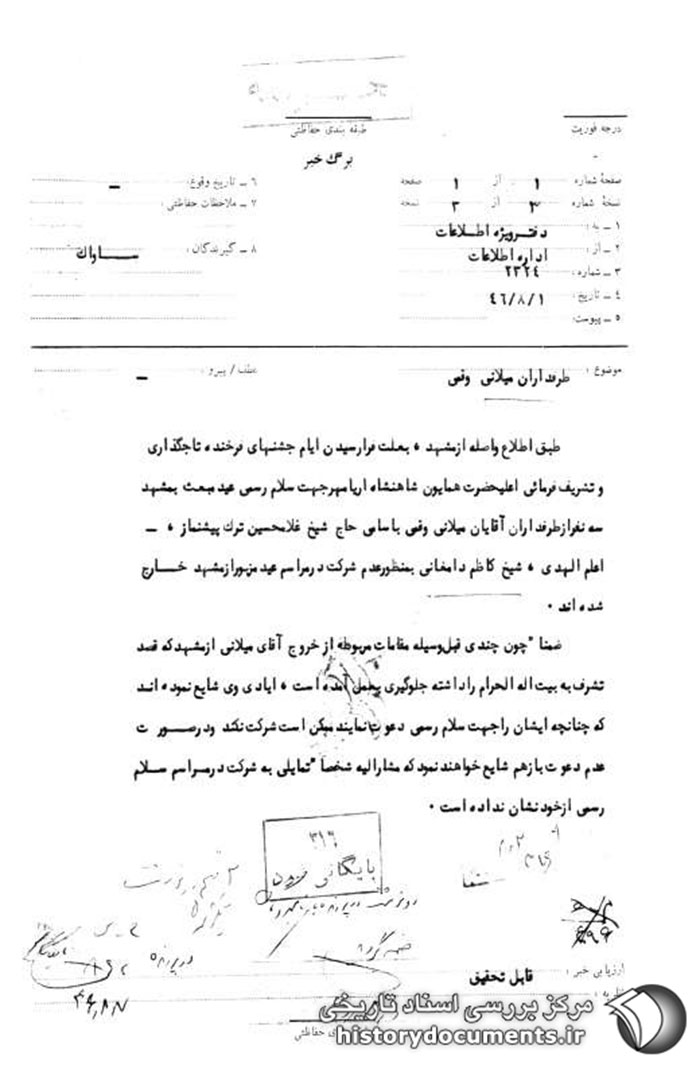 درجه فوریت
طبقه بندی حفاظتی
برگ خبر
صفحهٔ شماره ۱ از ۱ صفحه
نسخهٔ شماره ۳ از ۳ نسخه
۱ ــ به : دفترویژه اطلاعات
۲ ــ از : اداره اطلاعات
۳ ــ شماره : ۲۳۲۴
۴ ــ تاریخ : ۴۶/۸/۱
۵ ــ پیوست:
۶ ــ تاریخ وقوع: ــ
۷ ــ ملاحظات حفاظتی :
۸ ــ گیرندگان : ســـاواك
موضوع : طرفداران میلانی وقمی
عطف / پیرو : ــ
طبق اطلاع واصله ازمشهد ، بعلت فرارسیدن ایام جشنهای فرخنده تاجگذاری
و تشریف فرمائی اعلیحضرت همایون شاهنشاه اریامهرجهت سلام رسمی عید مبعث بمشهد
سه نفرازطرفداران آقایان میلانی وقمی باسامی حاج شیخ غلامحسین ترك پیشنماز ، ــ
اعلم الهدی ، شیخ کاظم دامغانی بمنظورعدم شرکت درمراسم عید مزبورازمشهد خـــارج
شده اند .
ضمنا" چون چندی قبل وسیله مقامات مربوطه از خروج آقای میلانی ازمشهدکه قصد
تشرف به بیت اله الحرام راداشته جلوگیری بعمل آمده است ، ایادی وی شایع نموده انـد
که چنانچه ایشان راجهت سلام رسمی دعوت نمایند ممکن است شرکت نکند ودرصـــورت
عدم دعوت بازهم شایع خواهند نمود که مشارالیه شخصا" تمایلی به شرکت درمراسم سـلام
رسمی ازخود نشان نداده است .
۳۱۶
بایگانی شود
ضمیمه گردد
درپرونده
ارزیابی خبر : قابل تحقیق
نظریه :
مرکز بررسی اسناد تاریخی
historydocuments.ir
حفاظتی